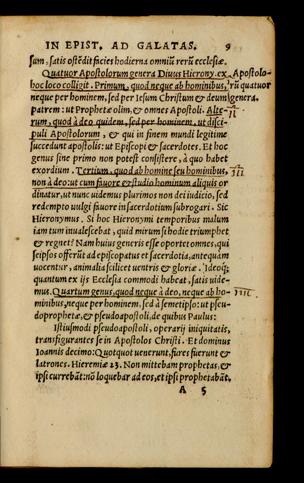 IN EPIST. AD GALATAS. 9
sum, satis ostēdit facies hodierna omniū rerū ecclesiæ.
Quatuor Apostolorum genera Diuus Hierony. ex Apostolo-
hoc loco colligit. Primum, quod neque ab hominibus, rū quatuor
neque per hominem, sed per Iesum Christum & deum genera.
patrem: ut Prophetæ olim, & omnes Apostoli. Alte- II
rum, quod à deo quidem, sed per hominem, ut disci-
puli Apostolorum, & qui in finem mundi legitime
succedunt apostolis: ut Episcopi & sacerdotes. Et hoc
genus sine primo non potest consistere, à quo habet
exordium. Tertium, quod ab homine seu hominibus, III
non à deo: ut cum fauore & studio hominum aliquis or
dinatur, ut nunc uidemus plurimos non dei iudicio, sed
redempto uulgi fauore in sacerdotium subrogari. Sic
Hieronymus. Si hoc Hieronymi temporibus malum
iam tum inualescebat, quid mirum si hodie triumphet
& regnet? Nam huius generis esse oportet omnes, qui
seipsos offerūt ad episcopatus et sacerdotia, antequàm
uocentur, animalia scilicet uentris & gloriæ. Ideoq;
quantum ex ijs Ecclesia commodi habeat, satis uide-
mus. Quartum genus, quod neque à deo, neque ab ho- IIII
minibus, neque per hominem, sed à semetipso: ut pseu-
doprophetæ, & pseudoapostoli, de quibus Paulus:
Istiusmodi pseudoapostoli, operarij iniquitatis,
transfigurantes se in Apostolos Christi. Et dominus
Ioannis decimo: Quotquot uenerunt, fures fuerunt &
latrones. Hieremiæ 23. Non mittebam prophetas, &
ipsi currebāt: nō loquebar ad eos, et ipsi prophetabāt.
A 5